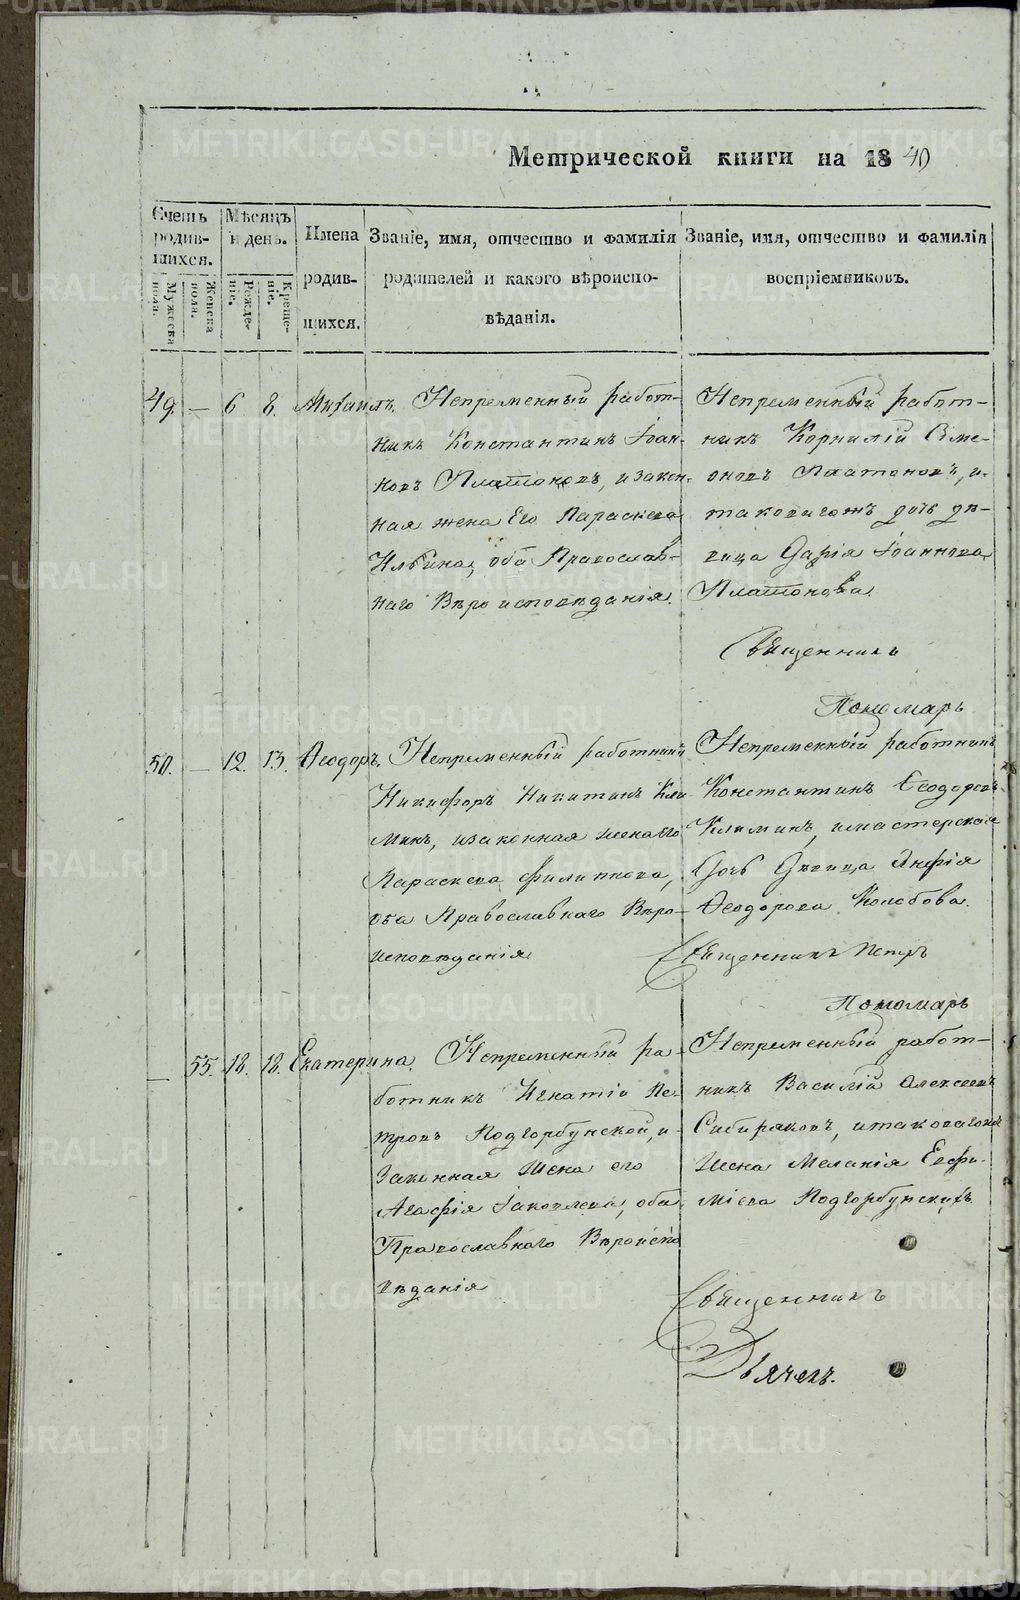 Метрической книги на 1849
Счетъ родив-шихся.
Мужеска пола.
Женска пола.
Мѣсяцъ и день.
Рожде-ніе.
Креще-ніе.
Имена родив-шихся.
Званіе, имя, отчество и фамилія
родителей и какого вѣроиспо-
вѣданія.
Званіе, имя, отчество и фамилія
воспріемниковъ.
49. — 6 8. Михаилъ.
Непременный работ-
никъ Константинъ Іоан-
новъ Платоновъ, и закон-
ная жена Его Параскева
Ильина, оба Православ-
наго Вѣроисповѣданія.
Непременный работ-
никъ Корнилій Симе-
оновъ Платоновъ, и
таковагожъ дочь дѣ-
вица Дарія Іоаннова
Платонова.
Священникъ
Пономарь
50. — 12. 13. Ѳеодоръ.
Непременный работникъ
Никифоръ Никитинъ Кли-
минъ, и законная жена его
Параскева Филиппова,
оба Православнаго Вѣро-
исповѣданія
Непременный работникъ
Константинъ Ѳеодоровъ
Климинъ, и мастерская
Дочь Дѣвица Анфія
Ѳеодорова Колобова.
Священникъ Петръ
Пономарь
— 55. 18. 18. Екатерина.
Непременный ра-
ботникъ Игнатій Пе-
тровъ Подгорбунской, и
Законная Жена его
Агафія Іаковлева, оба
Православнаго Вѣроиспо
вѣданія
Непременный работ-
никъ Василій Алексеевъ
Сибиряковъ, и таковагожъ
Жена Меланія Евфи-
міева Подгорбунскихъ
Священникъ
Дьячекъ.
METRIKI.GASO-URAL.RU